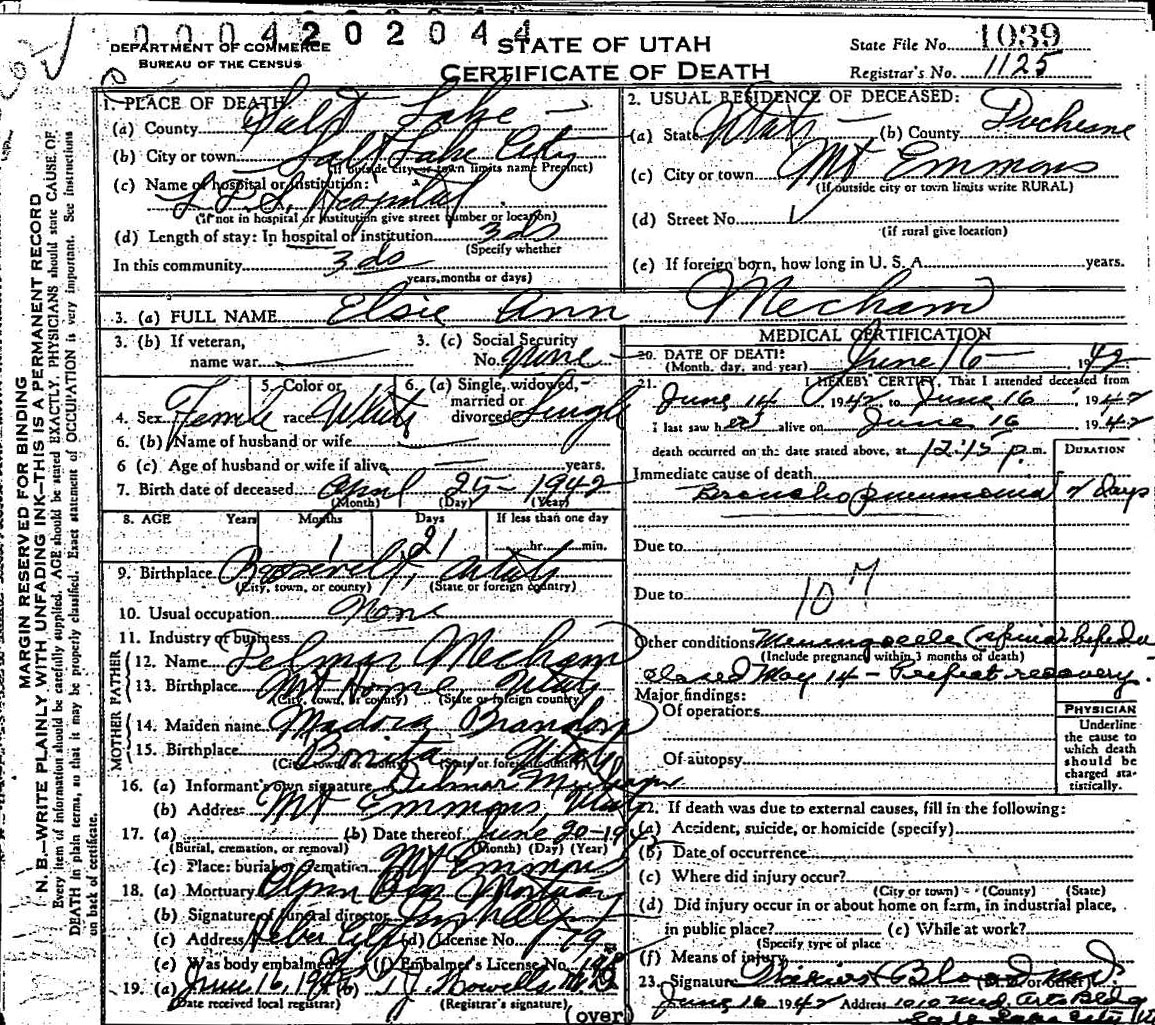 0004202044
DEPARTMENT OF COMMERCE
BUREAU OF THE CENSUS
STATE OF UTAH
CERTIFICATE OF DEATH
State File No. 1039
Registrar's No. 1125
MARGIN RESERVED FOR BINDING
N. B.—WRITE PLAINLY WITH UNFADING INK—THIS IS A PERMANENT RECORD
Every item of information should be carefully supplied. AGE should be stated EXACTLY. PHYSICIANS should state CAUSE OF
DEATH in plain terms, so that it may be properly classified. Exact statement of OCCUPATION is very important. See instructions
on back of certificate.
1. PLACE OF DEATH
(a) County Salt Lake
(b) City or town Salt Lake City
(If outside city or town limits name Precinct)
(c) Name of hospital or institution:
L.D.S. Hospital
(If not in hospital or institution give street number or location)
(d) Length of stay: In hospital of institution 3 ds
(Specify whether
In this community 3 ds
years, months or days)
2. USUAL RESIDENCE OF DECEASED:
(a) State Utah (b) County Duchesne
(c) City or town Mt Emmons
(If outside city or town limits write RURAL)
(d) Street No.
(if rural give location)
(e) If foreign born, how long in U. S. A. years.
3. (a) FULL NAME Elsie Ann Mecham
3. (b) If veteran,
name war
3. (c) Social Security
No. None
4. Sex Female
5. Color or
race White
6. (a) Single, widowed,
married or
divorced Single
6. (b) Name of husband or wife
6 (c) Age of husband or wife if alive years.
7. Birth date of deceased April 25 - 1942
(Month) (Day) (Year)
8. AGE Years Months Days If less than one day
1 21 hr. min.
9. Birthplace Roosevelt, Utah
(City, town, or county) (State or foreign country)
10. Usual occupation None
11. Industry of business
FATHER
12. Name Delmar Mecham
13. Birthplace Mt Home, Utah
(City, town, or county) (State or foreign country)
MOTHER
14. Maiden name Madora Brandon
15. Birthplace Bonita, Utah
(City, town, or county) (State or foreign country)
16. (a) Informant's own signature Delmar Mecham
(b) Address Mt Emmons, Utah
17. (a) (b) Date thereof June 20-1942
(Burial, cremation, or removal) (Month) (Day) (Year)
(c) Place: burial or cremation Mt Emmons
18. (a) Mortuary Mortuary
(b) Signature of funeral director
(c) Address Heber City (d) License No.
(e) Was body embalmed (f) Embalmer's License No.
19. (a) June 16, 1942 (b)
(Date received local registrar) (Registrar's signature)
(over)
MEDICAL CERTIFICATION
20. DATE OF DEATH: June 16 1942
(Month, day, and year)
21. I HEREBY CERTIFY, That I attended deceased from
June 14 1942 to June 16 1942
I last saw her alive on June 16 1942
death occurred on the date stated above, at 12:15 p.m.
DURATION
Immediate cause of death
Broncho pneumonia days
Due to
107
Due to
Other conditions Meningocele (spina bifida
(Include pregnancy within 3 months of death)
closed May 14 - Perfect recovery.
Major findings:
Of operations
Of autopsy
PHYSICIAN
Underline
the cause to
which death
should be
charged sta-
tistically.
22. If death was due to external causes, fill in the following:
(a) Accident, suicide, or homicide (specify)
(b) Date of occurrence
(c) Where did injury occur?
(City or town) (County) (State)
(d) Did injury occur in or about home on farm, in industrial place,
in public place? (e) While at work?
(Specify type of place
(f) Means of injury
23. Signature (M. D. or other)
June 16 1942 Address 1010 Med. Arts Bldg
Salt Lake City